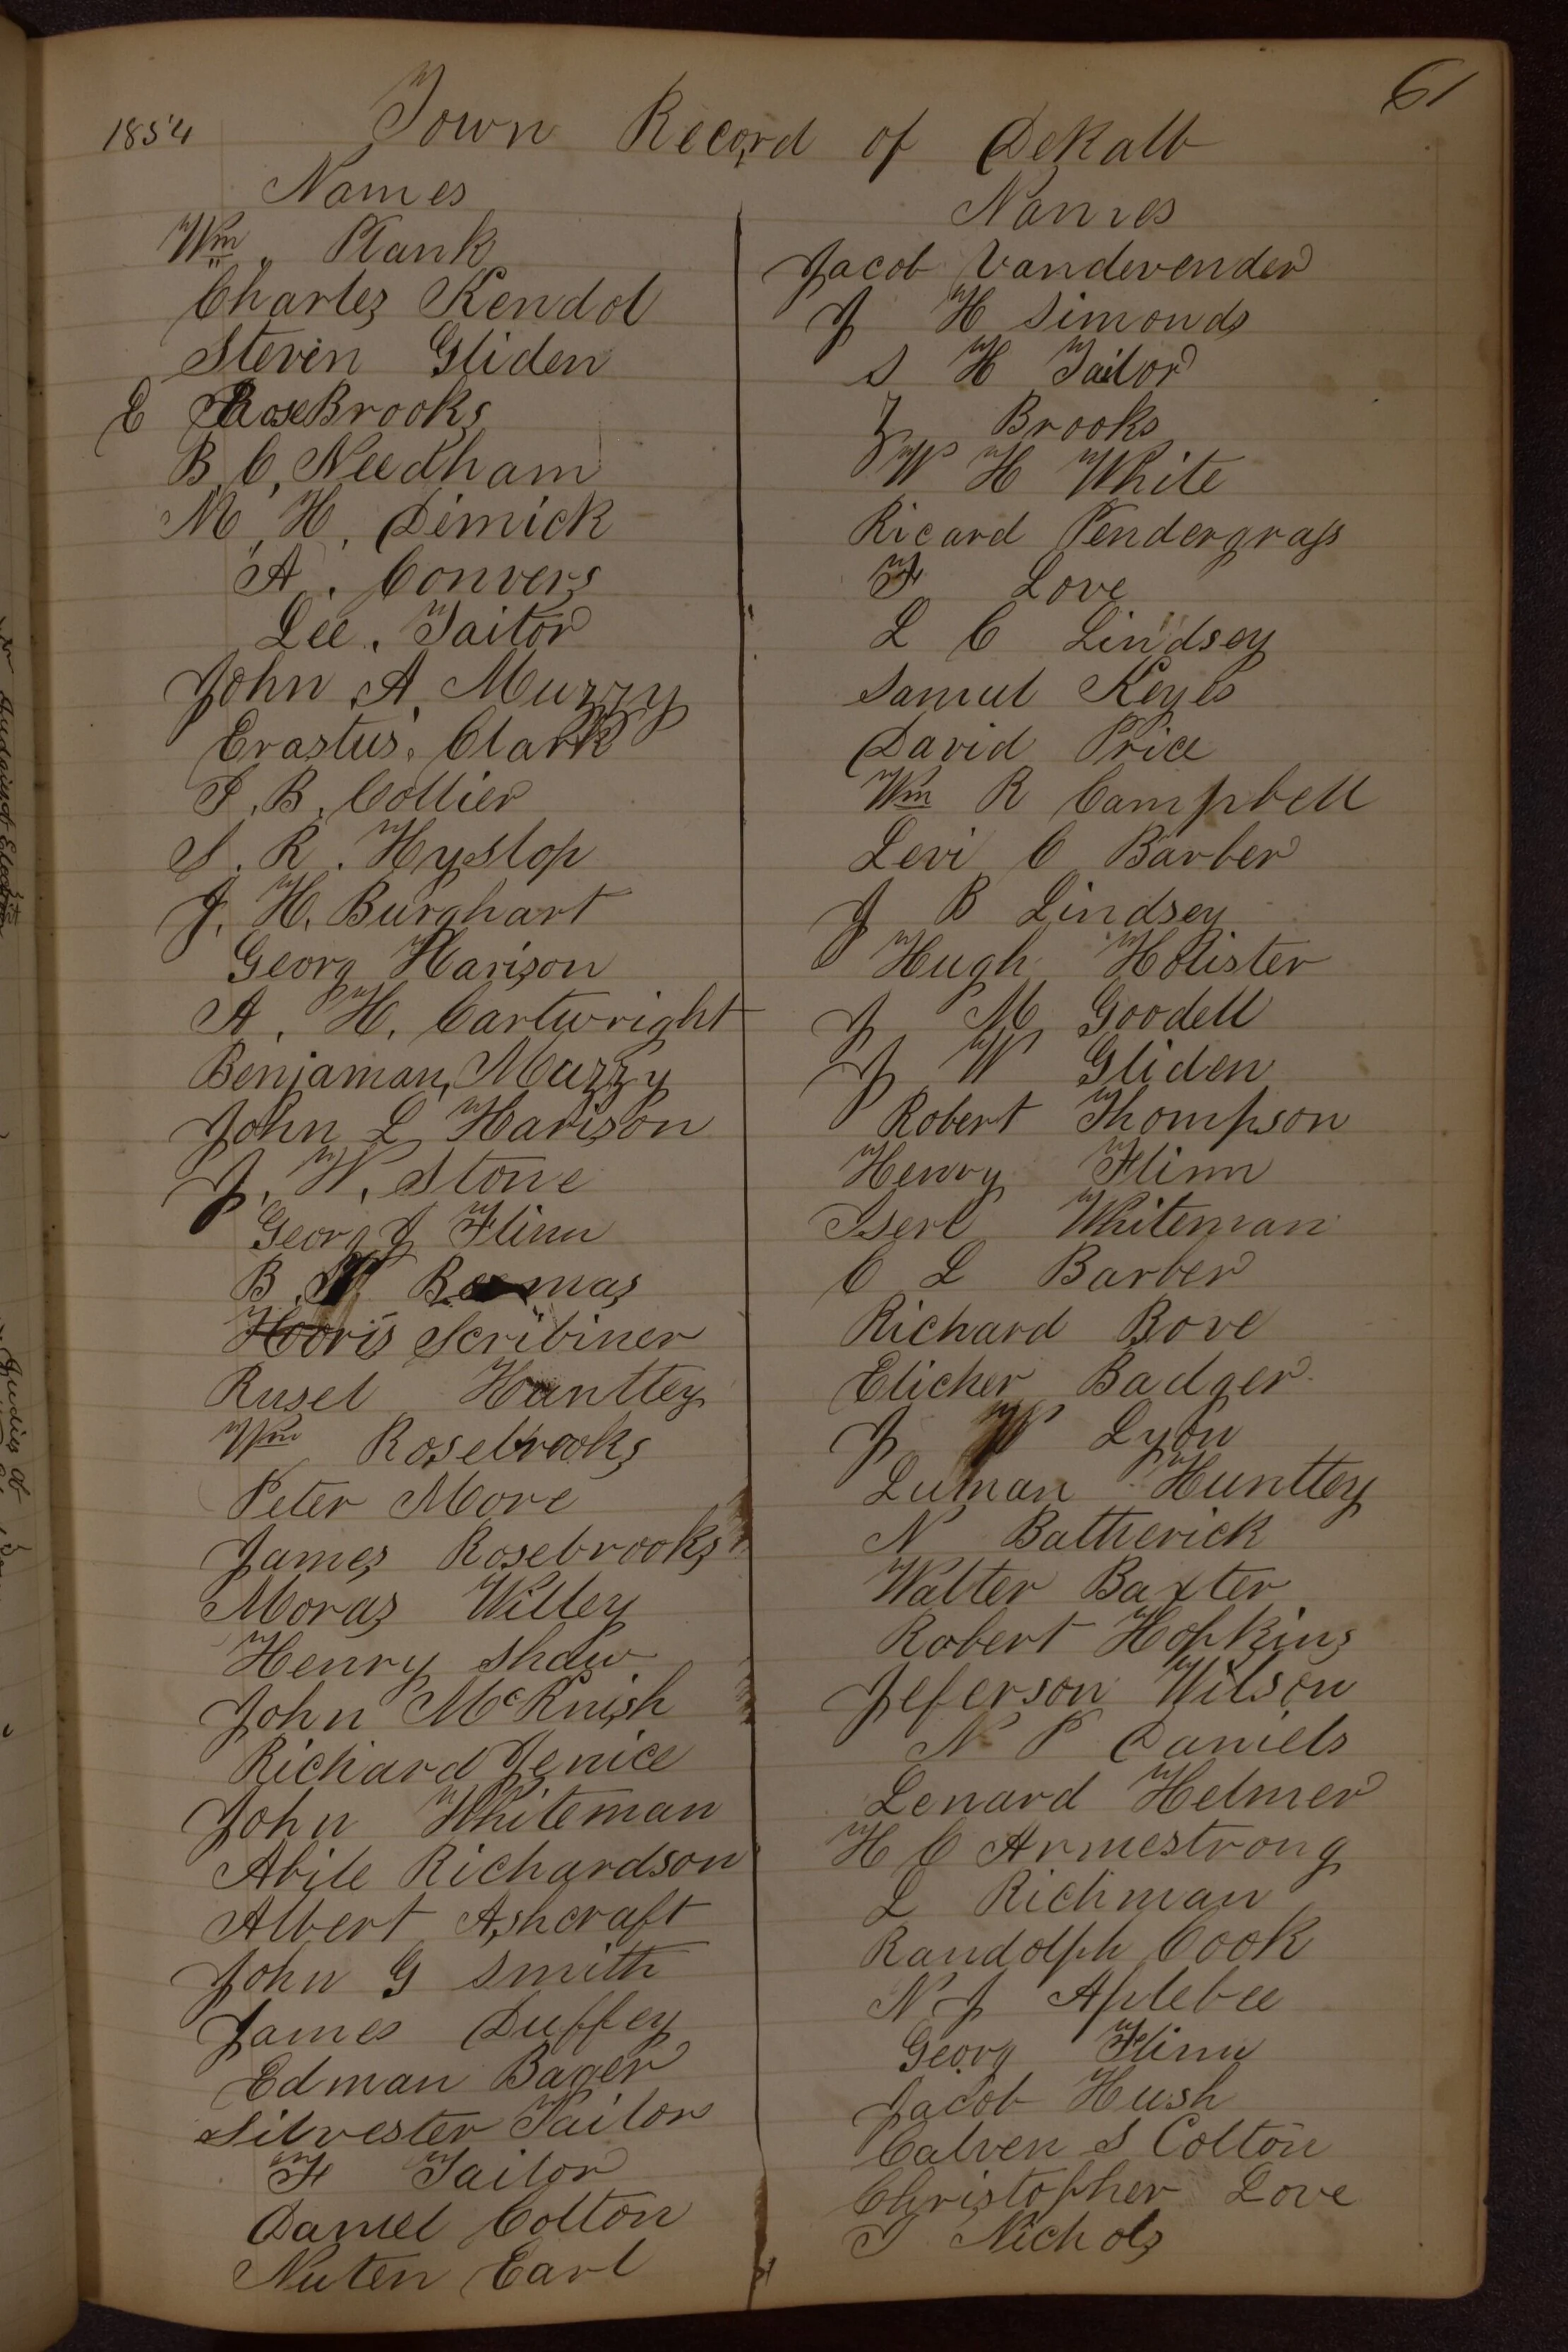 61
1854 Town Record of DeKalb
Names
Wm Plank
Charles Kendol
Steven Gliden
E RoseBrooks
B. C. Needham
M. H. Dimick
A. Convers
Lee. Tailor
John A. Muzzy
Erastus. Clark
S. B. Collier
S. R. Hyslop
J. H. Burghart
Georg Harison
A. H. Cartwright
Benjaman Muzzy
John L Harison
J. W. Stone
Georg J Flinn
B. Bemas
Horis Scribiner
Rusel Huntley
Wm Rosebrooks
Peter More
James Rosebrooks
Moras Willey
Henry Shaw
John McKnish
Richard Jenice
John Whiteman
Abile Richardson
Albert Ashcraft
John G Smith
James Duffey
Edman Bager
Silvester Tailor
F Tailor
Daniel Colton
Nuten Earl
Names
Jacob Vandevender
J H Simonds
S H Tailor
Z Brooks
W H White
Ricard Pendergrass
F Love
L C Lindsey
Samul Keyes
David Price
Wm R Campbell
Levi C Barber
J B Lindsey
Hugh Holister
J M Goodell
J W Gliden
Robert Thompson
Henry Flinn
Iserl Whiteman
C L Barber
Richard Bove
Elicher Badger
J W Lyon
Luman Huntley
N Batherick
Walter Baxter
Robert Hopkins
Jeferson Wilson
N P Daniels
Lenard Helmer
H C Armestrong
L Richman
Randolph Cook
N J Aplebee
Georg Flinn
Jacob Hush
Calven S Colton
Christopher Love
I Nichols